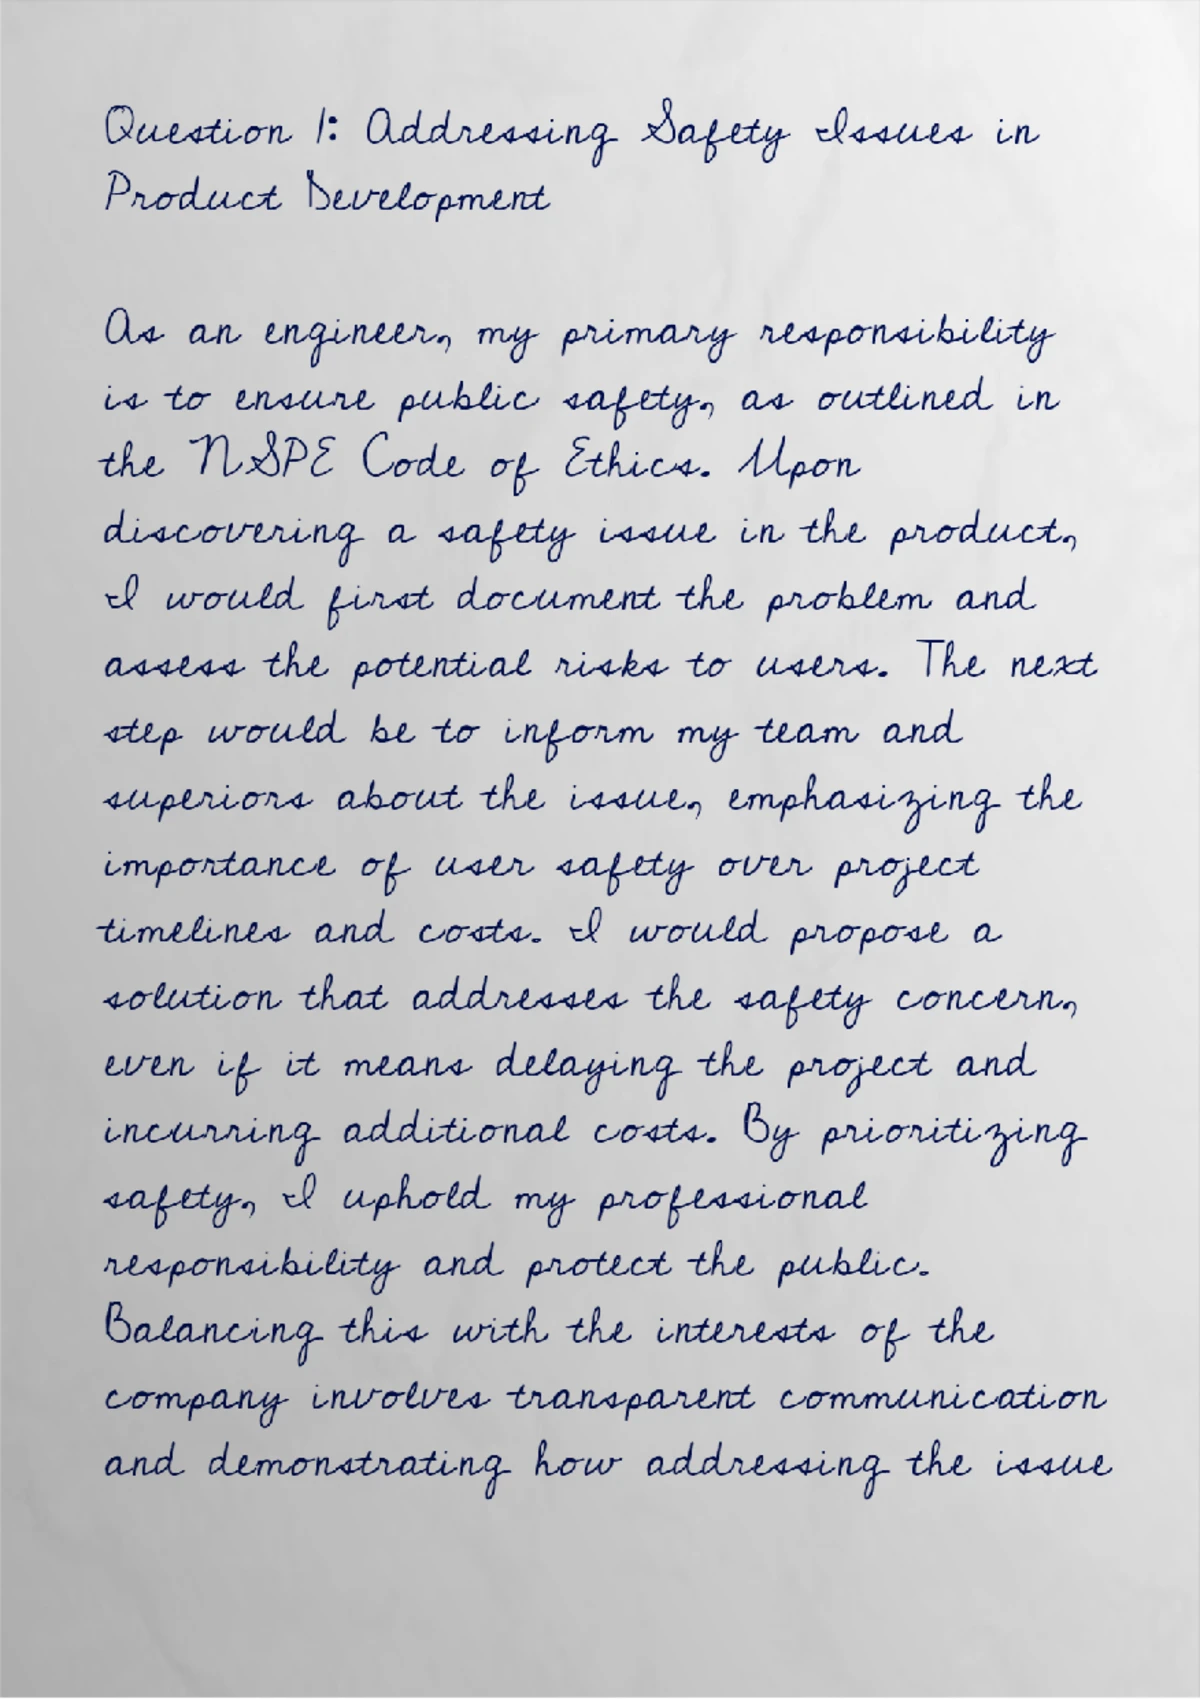 Question 1: Addressing Safety Issues in
Product Development
As an engineer, my primary responsibility
is to ensure public safety, as outlined in
the NSPE Code of Ethics. Upon
discovering a safety issue in the product,
I would first document the problem and
assess the potential risks to users. The next
step would be to inform my team and
superiors about the issue, emphasizing the
importance of user safety over project
timelines and costs. I would propose a
solution that addresses the safety concern,
even if it means delaying the project and
incurring additional costs. By prioritizing
safety, I uphold my professional
responsibility and protect the public.
Balancing this with the interests of the
company involves transparent communication
and demonstrating how addressing the issue